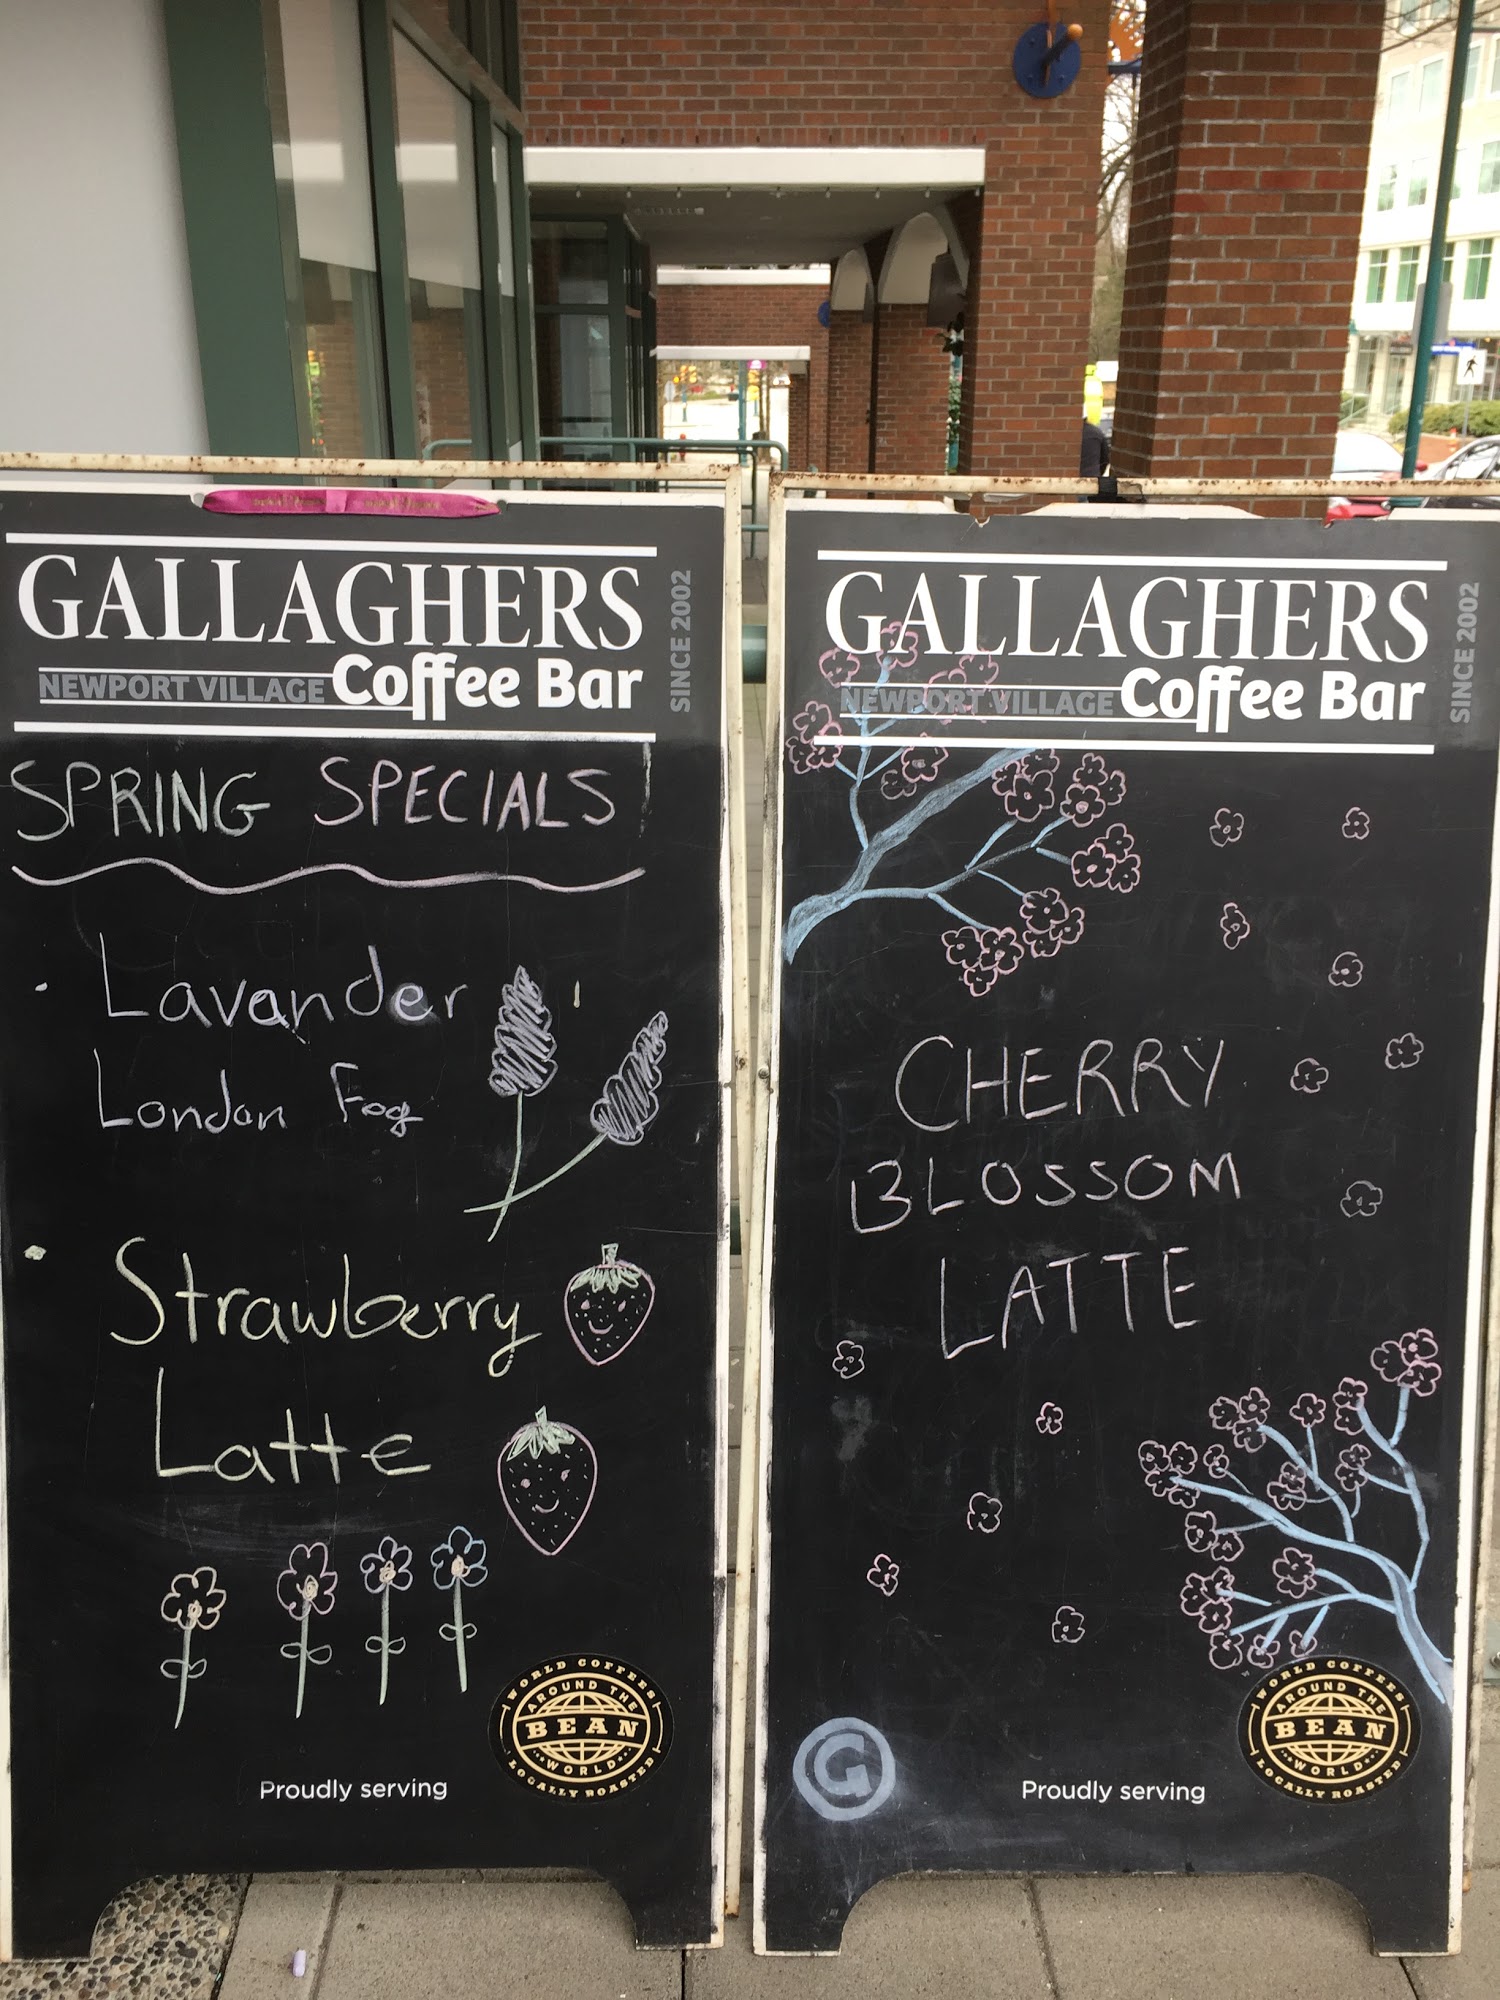 GALLAGHERS
NEWPORT VILLAGE Coffee Bar
SINCE 2002
SPRING SPECIALS
· Lavander
London Fog
· Strawberry
Latte
Proudly serving
WORLD COFFEES
AROUND THE
BEAN
WORLD
LOCALLY ROASTED
GALLAGHERS
NEWPORT VILLAGE Coffee Bar
SINCE 2002
CHERRY
BLOSSOM
LATTE
G
Proudly serving
WORLD COFFEES
AROUND THE
BEAN
WORLD
LOCALLY ROASTED